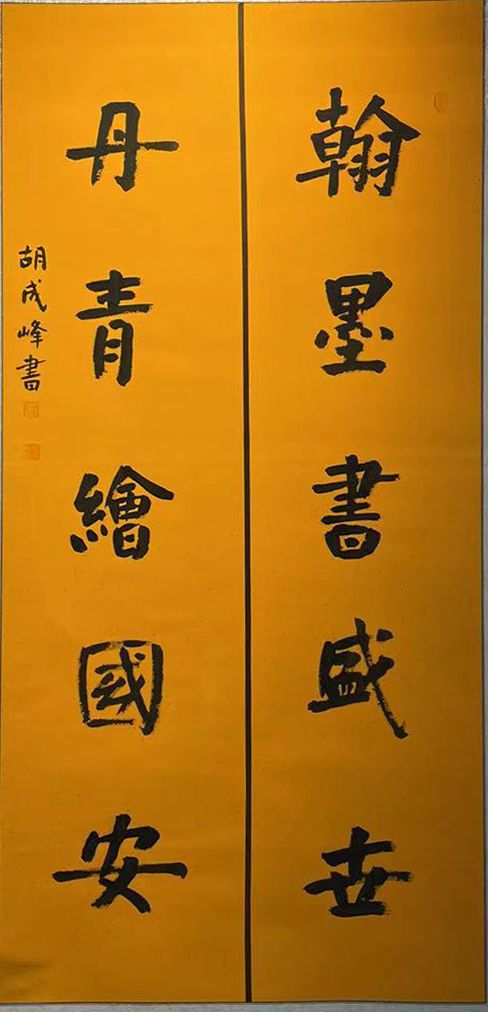 翰墨書盛世
丹青繪國安
胡成峰書